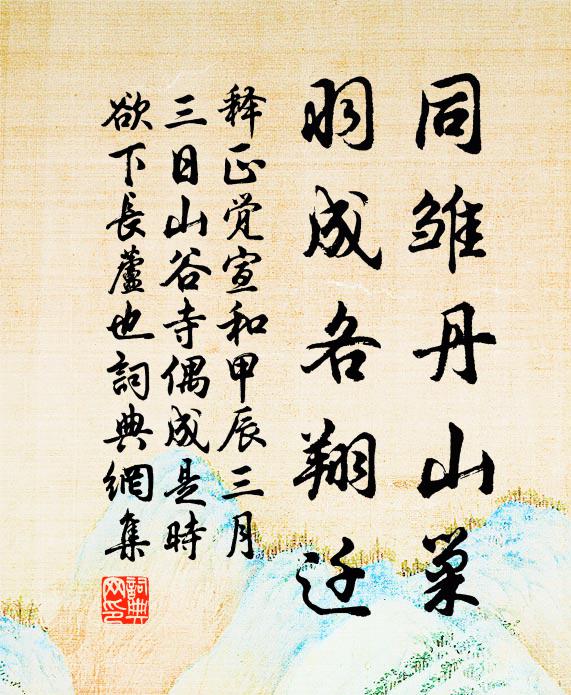 同雏丹山巢
羽成各翔迁
释正觉宣和甲辰三月
三日山谷寺偶成是時
欲下長蘆也詞典網集
詞典網印